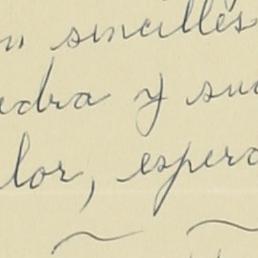 n sincilles
edra y su
lor, espera